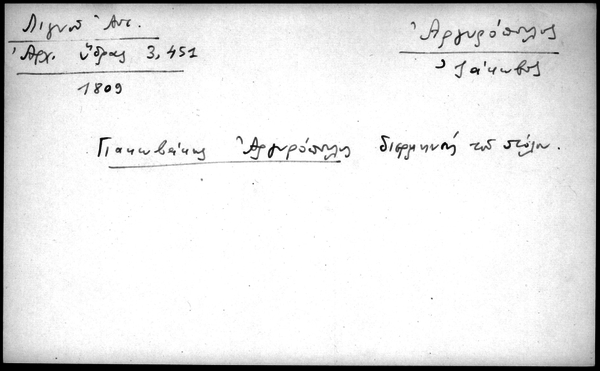 Λιγνοῦ Ἀντ.
Ἀρχ. Ὕδρας 3,451
1809
Ἀργυρόπουλος
Ἰάκωβος
Γιακωβάκης Ἀργυρόπουλος διερμηνεὺς τοῦ στόλου.